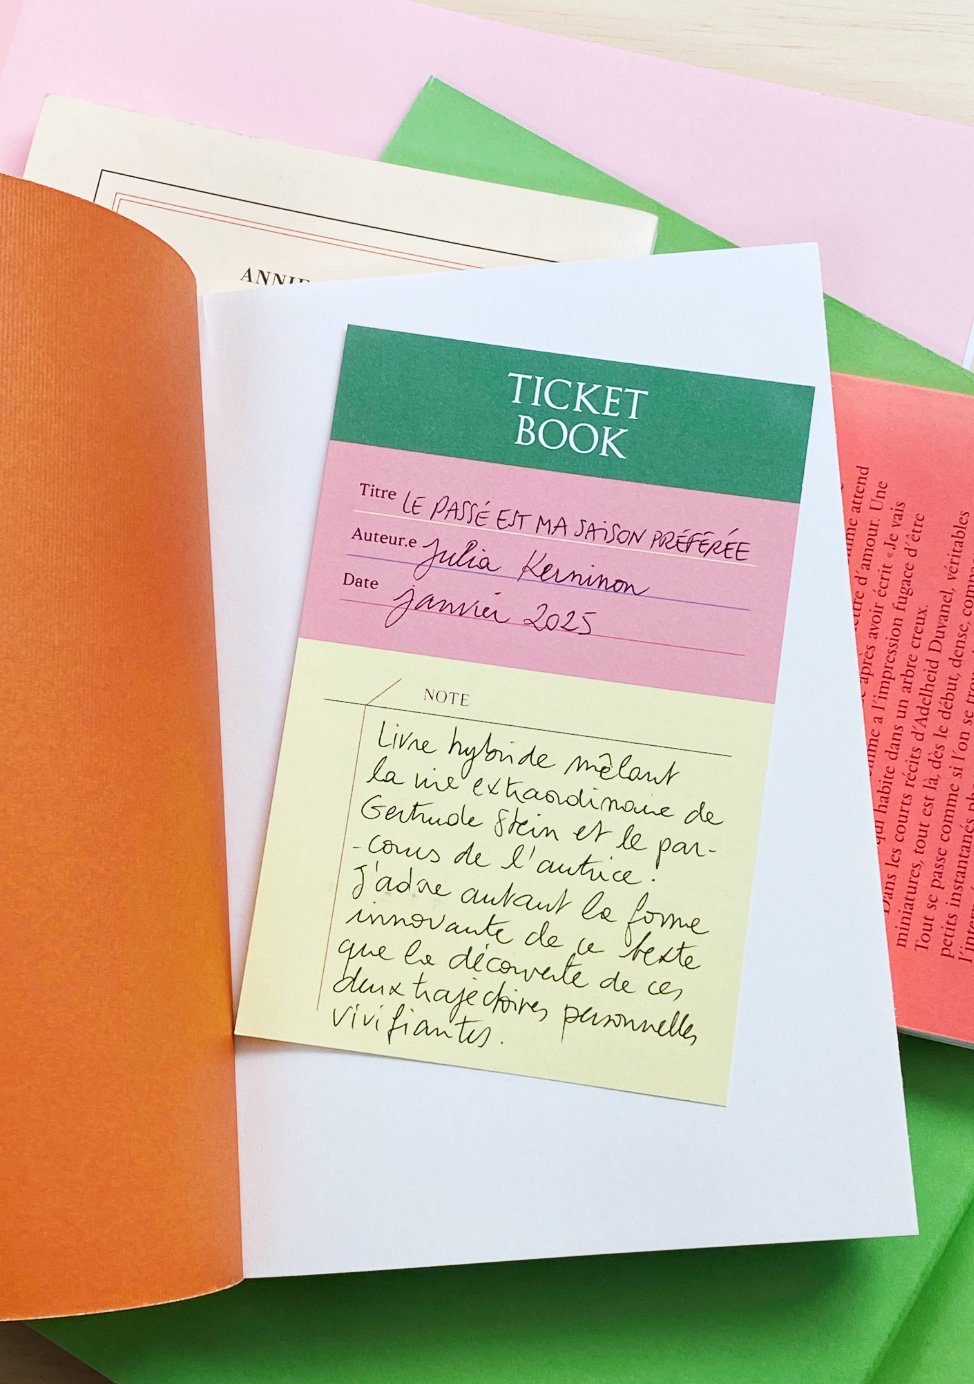 ANNIE
TICKET
BOOK
Titre LE PASSÉ EST MA SAISON PRÉFÉRÉE
Auteur.e Julia Kerninon
Date janvier 2025
NOTE
Livre hybride mêlant
la vie extraordinaire de
Gertrude Stein et le par-
-cours de l'autrice.
J'adore autant la forme
innovante de ce texte
que la découverte de ces
deux trajectoires personnelles
vivifiantes.
me attend
être d'amour. Une
après avoir écrit « Je vais
me a l'impression fugace d'être
qui habite dans un arbre creux.
Dans les courts récits d'Adelheid Duvanel, véritables
miniatures, tout est là, dès le début, dense,
Tout se passe comme si l'on se
petits instantanés